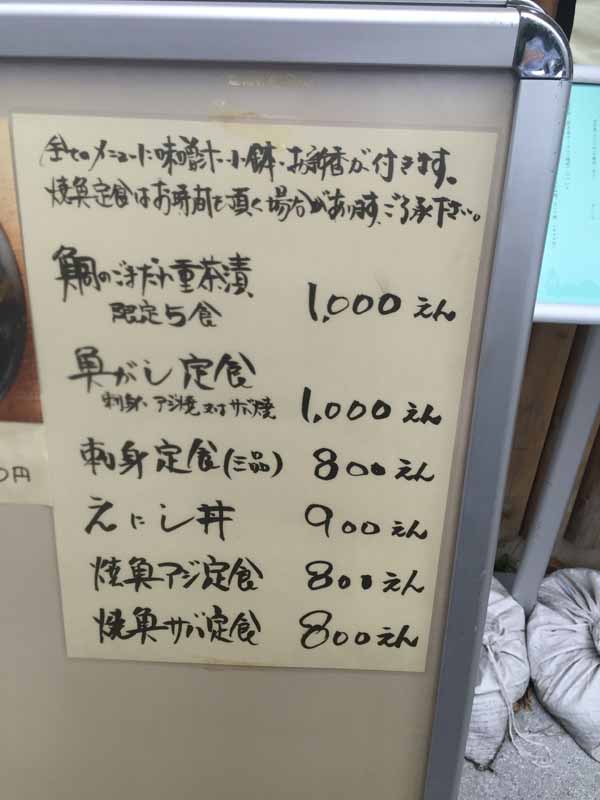 全てのメニューに味噌汁・小鉢・お新香が付きます。
焼魚定食はお時間を頂く場合があります。ご了承下さい。
鯛のごまだれ重茶漬 1,000えん
限定5食
魚がし定食
刺身、アジ焼又はサバ焼 1,000えん
刺身定食(三品) 800えん
えにし丼 900えん
焼魚アジ定食 800えん
焼魚サバ定食 800えん
0円